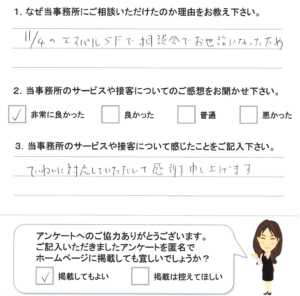 1. なぜ当事務所にご相談いただけたのか理由をお教え下さい。
11/4の エスパルSFで 相談会でお世話になったため
2. 当事務所のサービスや接客についてのご感想をお聞かせ下さい。
✓ 非常に良かった 良かった 普通 悪かった
3. 当事務所のサービスや接客について感じたことをご記入下さい。
ていねいに対応していただいて感謝申し上げます
アンケートへのご協力ありがとうございます。
ご記入いただきましたアンケートを匿名で
ホームページに掲載しても宜しいでしょうか？
✓ 掲載してもよい 掲載は控えてほしい